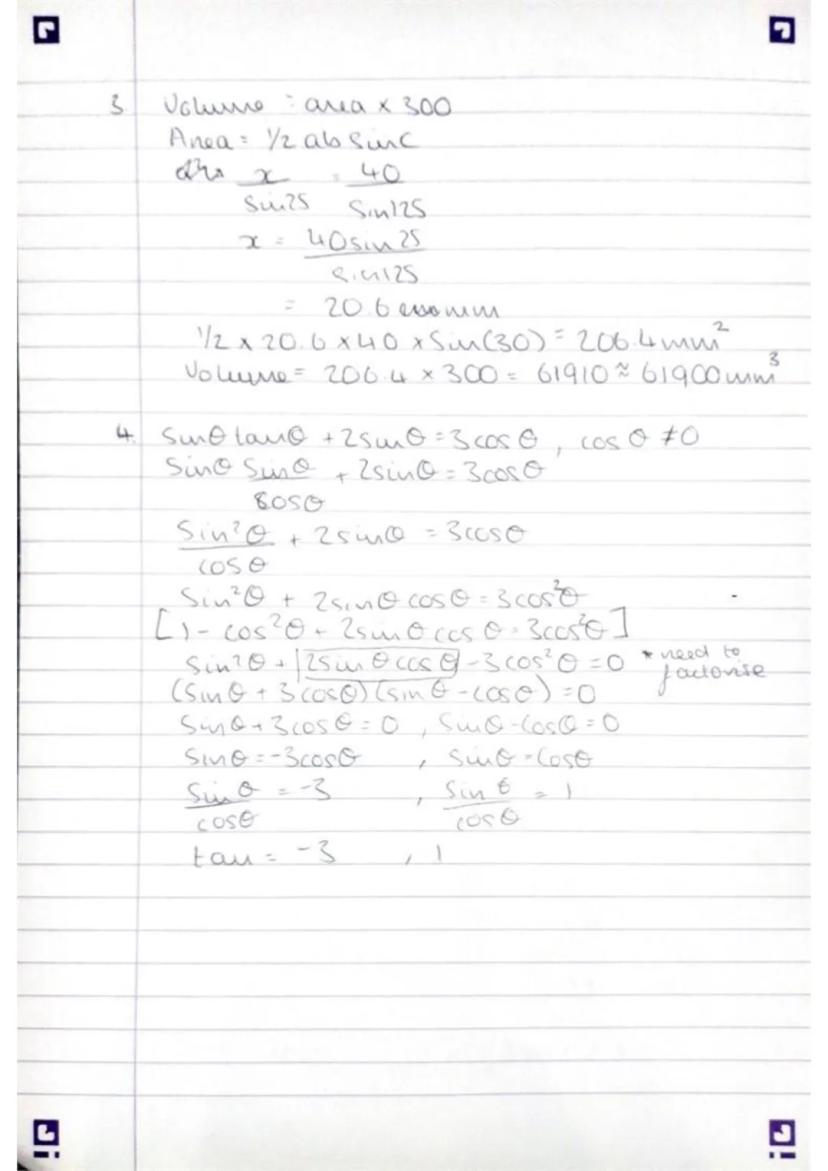 3 Volume = area × 300
Area = 1/2 ab sin C
x/sin25 = 40/sin125
x = 40sin25/sin125
= 20.6 mm
1/2 × 20.6 × 40 × Sin(30) = 206.4mm²
Volume = 206.4 × 300 = 61910 ≈ 61900mm³
4. sinθ tanθ + 2sinθ = 3cosθ, cosθ ≠ 0
Sinθ Sinθ/cosθ + 2sinθ = 3cosθ
Sin²θ/cosθ + 2sinθ = 3cosθ
Sin²θ + 2sinθ cosθ = 3cos²θ
[1 - cos²θ + 2sinθ cosθ = 3cos²θ]
sin²θ + 2sinθ cosθ - 3cos²θ = 0 * need to
factorise
(sinθ + 3cosθ)(sinθ - cosθ) = 0
Sinθ + 3cosθ = 0, Sinθ - cosθ = 0
Sinθ = -3cosθ, sinθ = cosθ
Sinθ/cosθ = -3, sinθ/cosθ = 1
tan = -3, 1